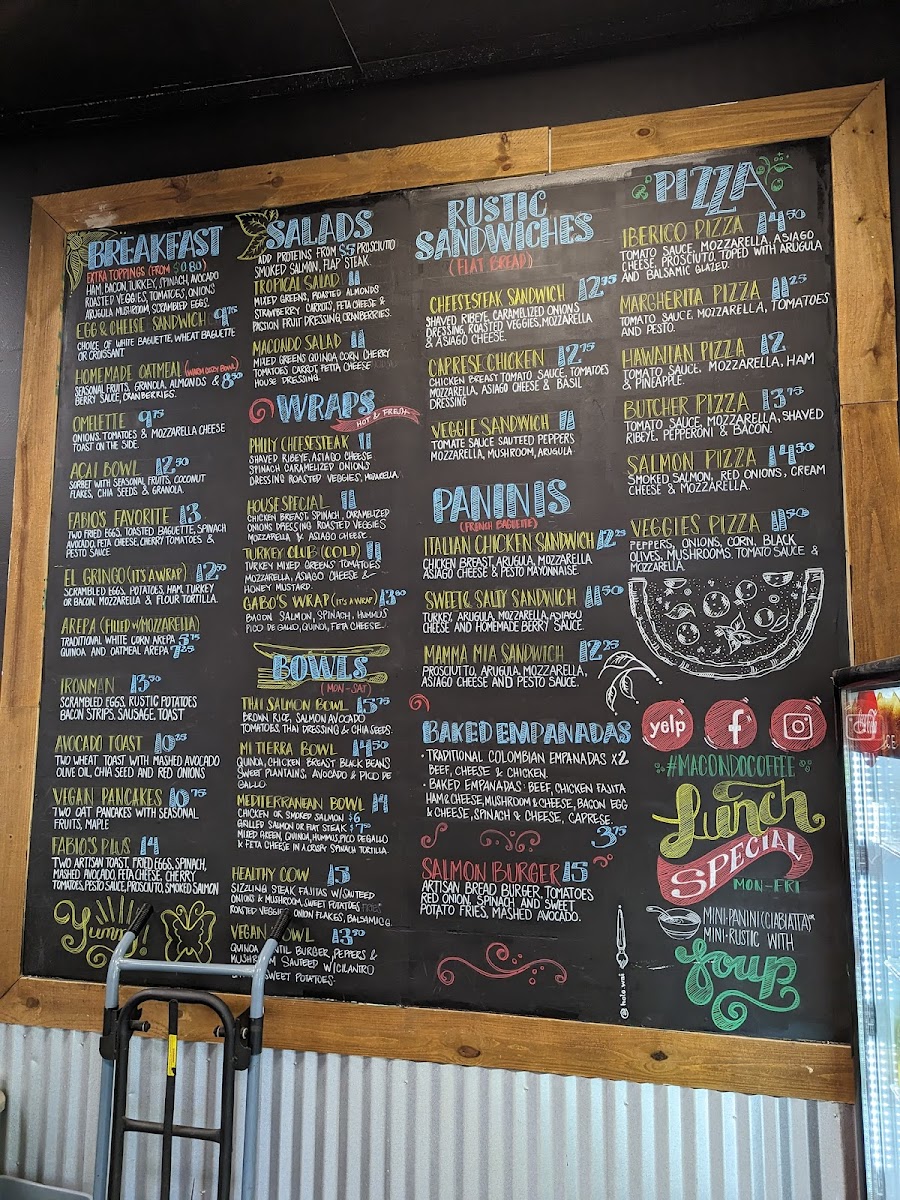 BREAKFAST
EXTRA TOPPINGS (FROM $0.80)
HAM, BACON, TURKEY, SPINACH, AVOCADO
ROASTED VEGGIES, TOMATOES, ONIONS
ARUGULA MUSHROOM, SCRAMBLED EGGS.
EGG & CHEESE SANDWICH 9.75
CHOICE OF WHITE BAGUETTE, WHEAT BAGUETTE
OR CROISSANT
HOMEMADE OATMEAL (WARM COZY BOWL)
SEASONAL FRUITS, GRANOLA, ALMONDS & 8.50
BERRY SAUCE, CRANBERRIES.
OMELETTE 9.75
ONIONS, TOMATOES & MOZZARELLA CHEESE
TOAST ON THE SIDE
ACAI BOWL 12.50
SORBET WITH SEASONAL FRUITS, COCONUT
FLAKES, CHIA SEEDS & GRANOLA.
FABIO'S FAVORITE 13
TWO FRIED EGGS, TOASTED BAGUETTE, SPINACH
AVOCADO, FETA CHEESE, CHERRY TOMATOES &
PESTO SAUCE
EL GRINGO (IT'S A WRAP) 12.50
SCRAMBLED EGGS, POTATOES, HAM, TURKEY
OR BACON, MOZZARELLA & FLOUR TORTILLA.
AREPA (FILLED W/MOZZARELLA)
TRADITIONAL WHITE CORN AREPA 5.75
QUINOA AND OATMEAL AREPA 7.25
IRONMAN 13.50
SCRAMBLED EGGS, RUSTIC POTATOES
BACON STRIPS, SAUSAGE, TOAST
AVOCADO TOAST 10.25
TWO WHEAT TOAST WITH MASHED AVOCADO
OLIVE OIL, CHIA SEED AND RED ONIONS
VEGAN PANCAKES 10.75
TWO OAT PANCAKES WITH SEASONAL
FRUITS, MAPLE
FABIO'S PLUS 14
TWO ARTISAN TOAST, FRIED EGGS, SPINACH,
MASHED AVOCADO, FETA CHEESE, CHERRY
TOMATOES, PESTO SAUCE, PROSCIUTO, SMOKED SALMON
Yummy!
SALADS
ADD PROTEINS FROM $5 PROSCIUTO
SMOKED SALMON, FLAP STEAK.
TROPICAL SALAD 11
MIXED GREENS, ROASTED ALMONDS
STRAWBERRY CARROTS, FETA CHEESE &
PASSION FRUIT DRESSING, CRANBERRIES.
MACONDO SALAD 11
MIXED GREENS QUINOA CORN CHERRY
TOMATOES CARROT, FETTA CHEESE
HOUSE DRESSING.
WRAPS
HOT & FRESH
PHILLY CHEESESTEAK 11
SHAVED RIBEYE, ASIAGO CHEESE
SPINACH CARAMELIZED ONIONS
DRESSING ROASTED VEGGIES, MOZZARELLA
HOUSE SPECIAL 11
CHICKEN BREAST, SPINACH, CARAMELIZED
ONIONS DRESSING ROASTED VEGGIES
MOZZARELLA & ASIAGO CHEESE.
TURKEY CLUB (COLD) 11
TURKEY MIXED GREENS TOMATOES
MOZZARELLA, ASIAGO CHEESE &
HONEY MUSTARD
GABO'S WRAP (IT'S A WRAP) 13.00
BACON SALMON, SPINACH, HUMMUS
PICO DE GALLO, QUINOA, FETA CHEESE.
BOWLS
(MON-SAT)
THAI SALMON BOWL 15.75
BROWN RICE, SALMON AVOCADO
TOMATOES, THAI DRESSING & CHIA SEEDS.
MI TIERRA BOWL 14.50
QUINOA, CHICKEN BREAST BLACK BEANS
SWEET PLANTAINS, AVOCADO & PICO DE
GALLO.
MEDITERRANEAN BOWL 14
CHICKEN OR SMOKED SALMON $6
GRILLED SALMON OR FLAT STEAK $7.50
MIXED GREEN, QUINOA, HUMMUS, PICO DE GALLO
& FETA CHEESE IN A CRISPY SPINACH TORTILLA.
HEALTHY COW 15
SIZZLING STEAK FAJITAS W/ SAUTEED
ONIONS & MUSHROOM, SWEET POTATOES
ROASTED VEGGIES ONION FLAKES, BALSAMIC G.
VEGAN BOWL 13.50
QUINOA LENTIL BURGER, PEPPERS &
MUSHROOM SAUTEED W/CILANTRO
SWEET POTATOES
RUSTIC
SANDWICHES
(FLAT BREAD)
CHEESESTEAK SANDWICH 12.95
SHAVED RIBEYE, CARAMELIZED ONIONS
DRESSING, ROASTED VEGGIES, MOZZARELLA
& ASIAGO CHEESE.
CAPRESE CHICKEN 12.75
CHICKEN BREAST TOMATO SAUCE, TOMATOES
MOZZARELLA, ASIAGO CHEESE & BASIL
DRESSING
VEGGIE SANDWICH 11
TOMATE SAUCE SAUTEED PEPPERS
MOZZARELLA, MUSHROOM, ARUGULA
PANINIS
(FRENCH BAGUETTE)
ITALIAN CHICKEN SANDWICH 12.25
CHICKEN BREAST, ARUGULA, MOZZARELLA
ASIAGO CHEESE & PESTO MAYONNAISE
SWEET & SALTY SANDWICH 11.50
TURKEY, ARUGULA, MOZZARELLA, ASIAGO
CHEESE AND HOMEMADE BERRY SAUCE
MAMMA MIA SANDWICH 12.25
PROSCIUTTO, ARUGULA, MOZZARELLA,
ASIAGO CHEESE AND PESTO SAUCE.
BAKED EMPANADAS
• TRADITIONAL COLOMBIAN EMPANADAS X2
BEEF, CHEESE & CHICKEN.
• BAKED EMPANADAS: BEEF, CHICKEN FAJITA
HAM & CHEESE, MUSHROOM & CHEESE, BACON EGG
& CHEESE, SPINACH & CHEESE, CAPRESE.
3.75
SALMON BURGER 15
ARTISAN BREAD BURGER, TOMATOES
RED ONION, SPINACH AND SWEET
POTATO FRIES, MASHED AVOCADO.
PIZZA
IBERICO PIZZA 14.50
TOMATO SAUCE, MOZZARELLA, ASIAGO
CHEESE, PROSCIUTO, TOPED WITH ARUGULA
AND BALSAMIC GLAZED.
MARGHERITA PIZZA 11.25
TOMATO SAUCE MOZZARELLA, TOMATOES
AND PESTO.
HAWAIIAN PIZZA 12
TOMATO SAUCE, MOZZARELLA, HAM
& PINEAPPLE.
BUTCHER PIZZA 13.75
TOMATO SAUCE, MOZZARELLA, SHAVED
RIBEYE, PEPPERONI & BACON.
SALMON PIZZA 14.50
SMOKED SALMON, RED ONIONS, CREAM
CHEESE & MOZZARELLA.
VEGGIES PIZZA 11.50
PEPPERS, ONIONS, CORN, BLACK
OLIVES, MUSHROOMS, TOMATO SAUCE &
MOZZARELLA.
yelp f
#MACONDOCOFFEE
Lunch
SPECIAL
MON-FRI
MINI-PANINI (CIABIATTA)
MINI-RUSTIC WITH
Soup